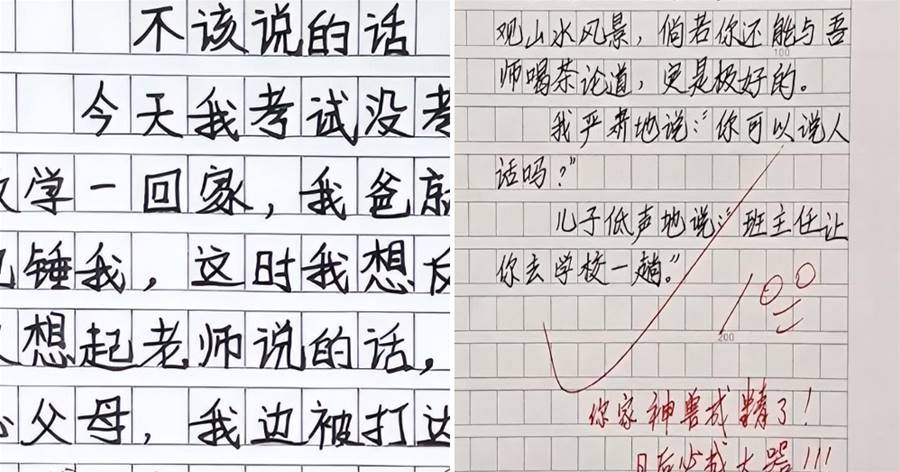 不该说的话
今天我考试没考
学一回家，我爸就
锤我，这时我想
想起老师说的话，
父母，我边被打边
观山水风景，倘若你还能与吾
100
师喝茶论道，更是极好的。
我严肃地说："你可以说人
话吗？"
儿子低声地说："班主任让
你去学校一趟。"
100
200
你家神兽成精了！
日后必成大器！！！